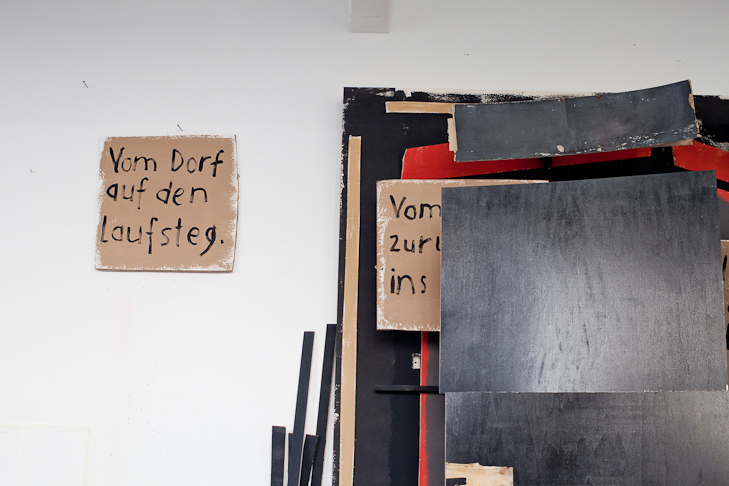 Vom Dorf
auf den
Laufsteg.
Vom
zurü
ins